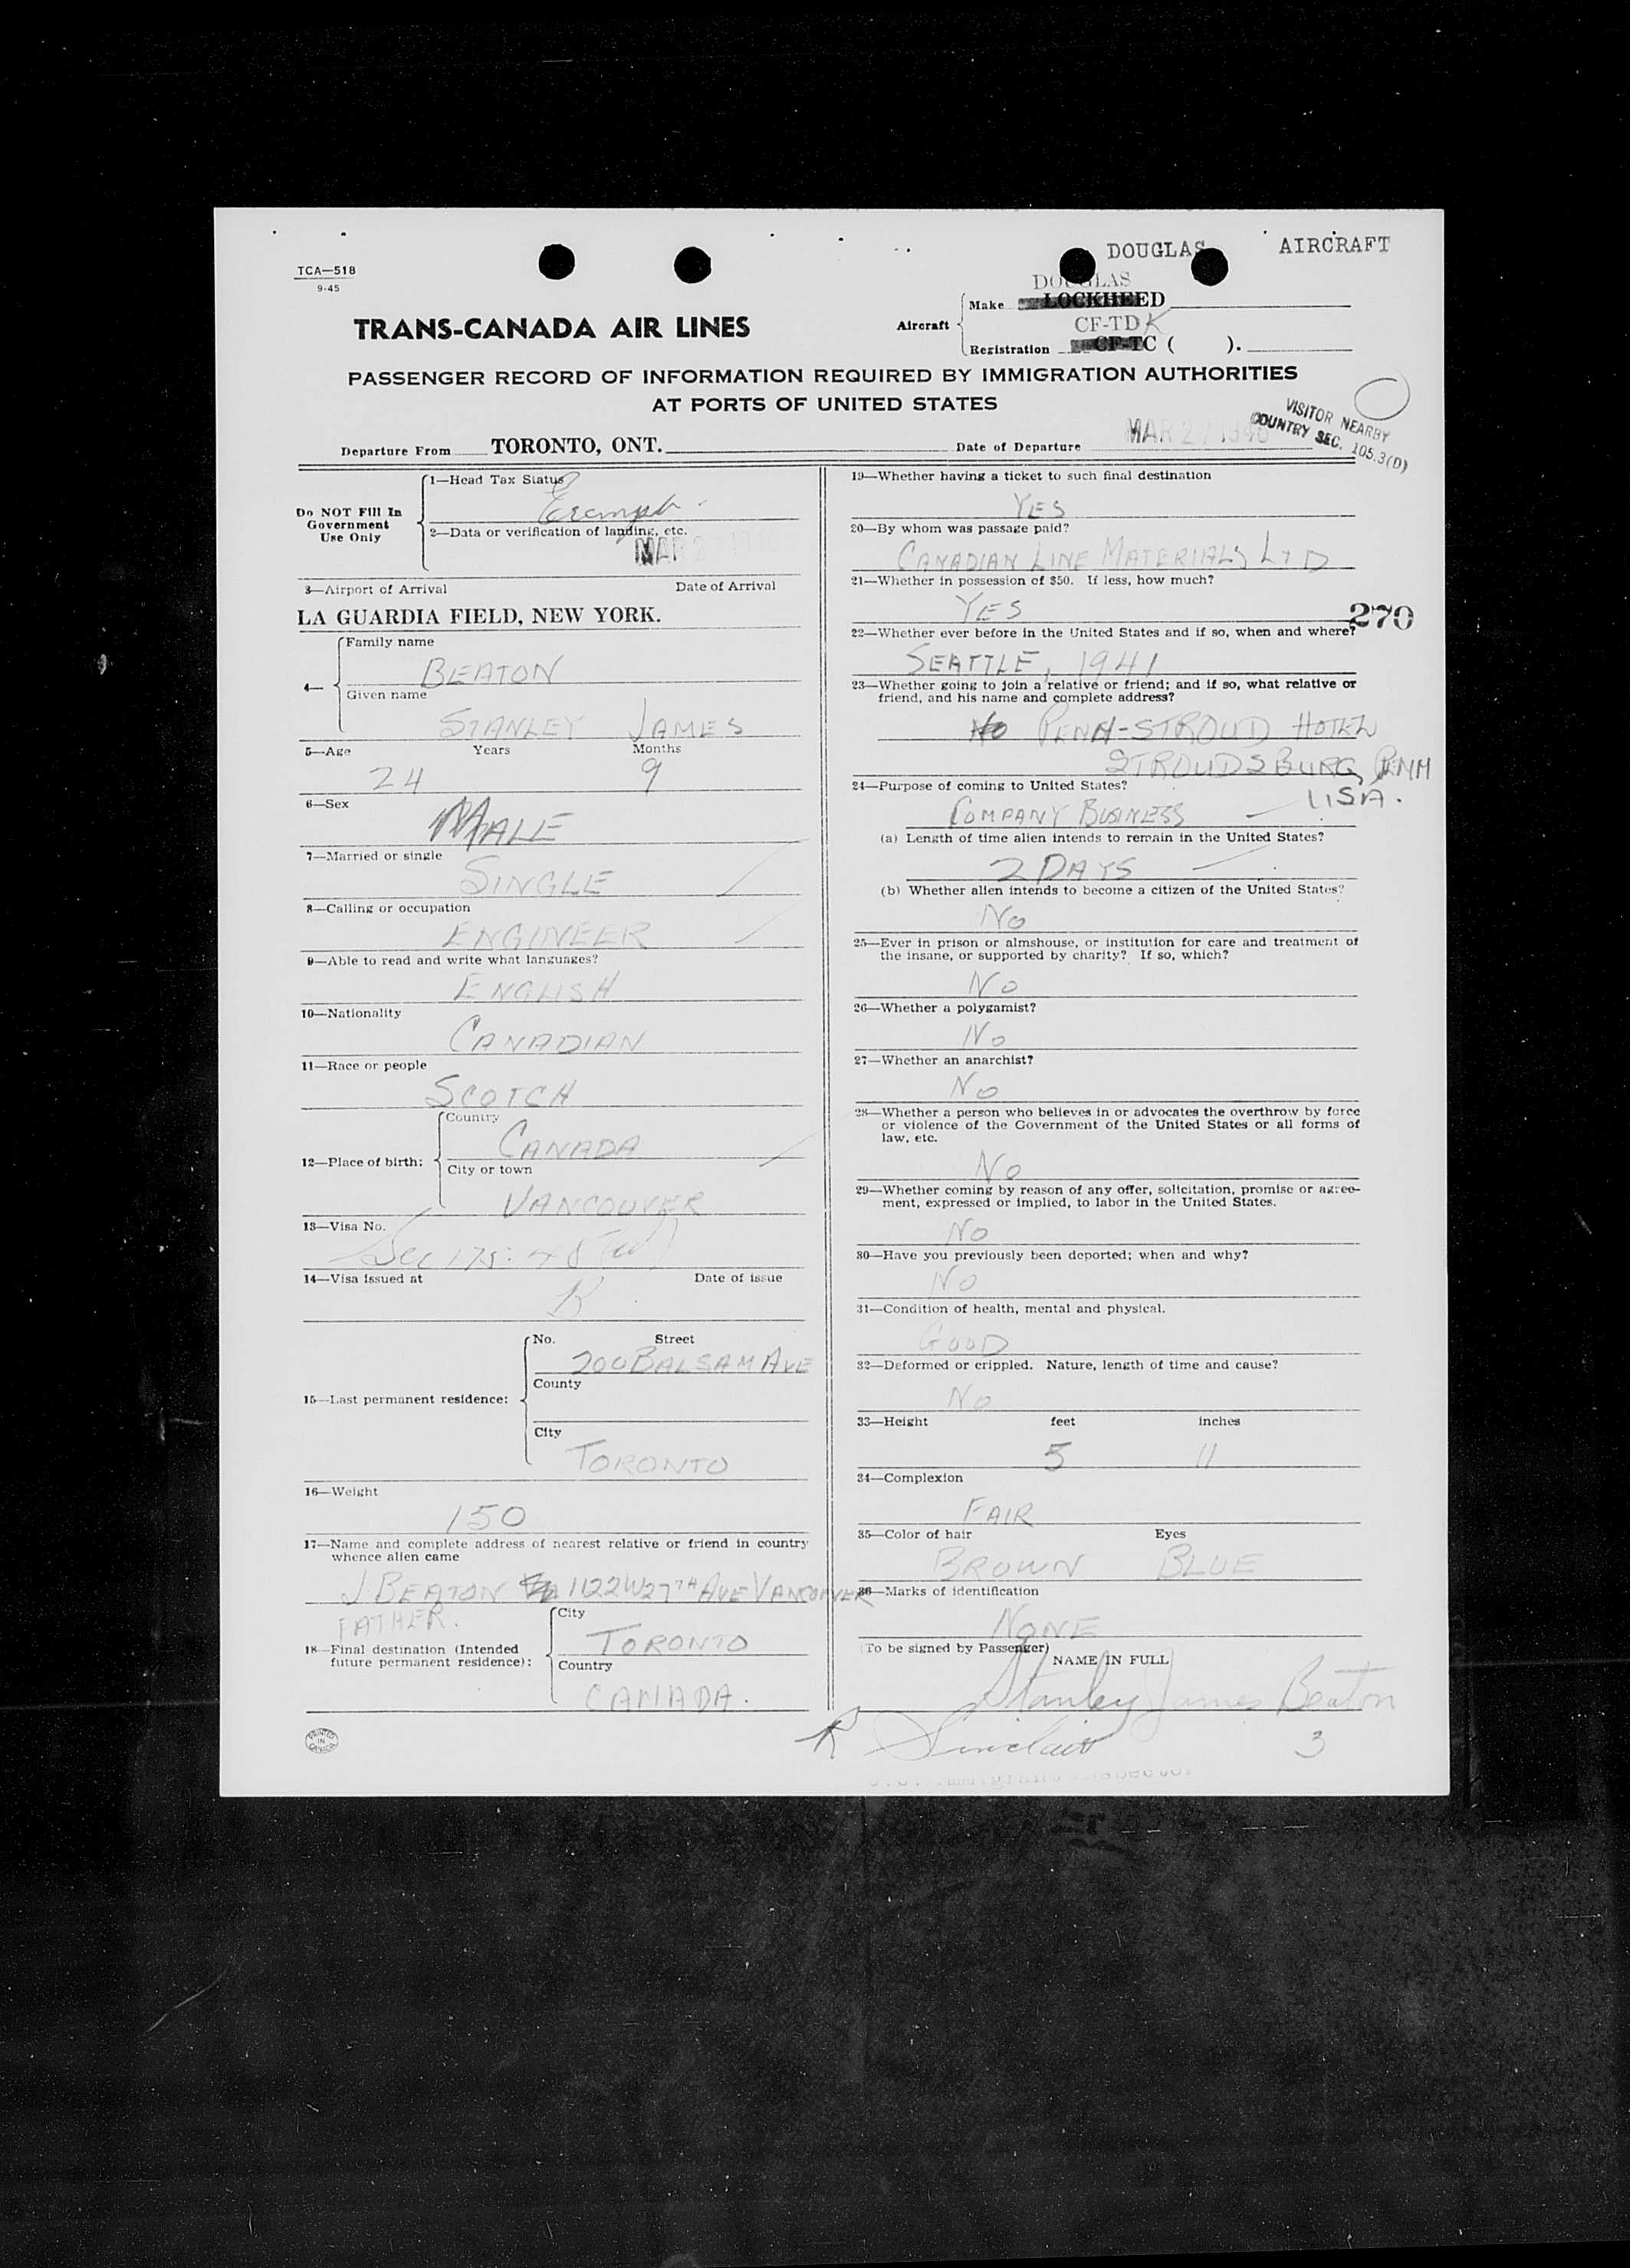 DOUGLAS AIRCRAFT
TCA—518
9-45
DOUGLAS
Make LOCKHEED
TRANS-CANADA AIR LINES
Aircraft
CF-TDK
Registration CF-TC ( ).
PASSENGER RECORD OF INFORMATION REQUIRED BY IMMIGRATION AUTHORITIES
AT PORTS OF UNITED STATES
VISITOR NEARBY
COUNTRY SEC. 105.3(D)
Departure From TORONTO, ONT. Date of Departure MAR 27 1946
Do NOT Fill In
Government
Use Only
1—Head Tax Status
Exempt
2—Data or verification of landing, etc.
MAR 27 1946
3—Airport of Arrival Date of Arrival
LA GUARDIA FIELD, NEW YORK.
4—
Family name
BEATON
Given name
STANLEY JAMES
5—Age Years Months
24 9
6—Sex
MALE
7—Married or single
SINGLE
8—Calling or occupation
ENGINEER
9—Able to read and write what languages?
ENGLISH
10—Nationality
CANADIAN
11—Race or people
SCOTCH
12—Place of birth:
Country
CANADA
City or town
VANCOUVER
13—Visa No.
Sec 175:
14—Visa issued at Date of issue
K
15—Last permanent residence:
No. Street
200 BALSAM AVE
County
City
TORONTO
16—Weight
150
17—Name and complete address of nearest relative or friend in country
whence alien came
J. BEATON 1122 W 27TH AVE VANCOUVER
FATHER.
18—Final destination (Intended
future permanent residence):
City
TORONTO
Country
CANADA.
PRINTED
IN
CANADA
19—Whether having a ticket to such final destination
YES
20—By whom was passage paid?
CANADIAN LINE MATERIALS LTD
21—Whether in possession of $50. If less, how much?
YES
270
22—Whether ever before in the United States and if so, when and where?
SEATTLE, 1941
23—Whether going to join a relative or friend; and if so, what relative or
friend, and his name and complete address?
No PENN-STROUD HOTEL
STROUDSBURG PENN
USA.
24—Purpose of coming to United States?
COMPANY BUSINESS
(a) Length of time alien intends to remain in the United States?
2 DAYS
(b) Whether alien intends to become a citizen of the United States?
No
25—Ever in prison or almshouse, or institution for care and treatment of
the insane, or supported by charity? If so, which?
No
26—Whether a polygamist?
No
27—Whether an anarchist?
No
28—Whether a person who believes in or advocates the overthrow by force
or violence of the Government of the United States or all forms of
law, etc.
No
29—Whether coming by reason of any offer, solicitation, promise or agree-
ment, expressed or implied, to labor in the United States.
No
30—Have you previously been deported; when and why?
No
31—Condition of health, mental and physical.
GOOD
32—Deformed or crippled. Nature, length of time and cause?
No
33—Height feet inches
5 11
34—Complexion
FAIR
35—Color of hair Eyes
BROWN BLUE
36—Marks of identification
NONE
(To be signed by Passenger)
NAME IN FULL
Stanley James Beaton
R Sinclair 3